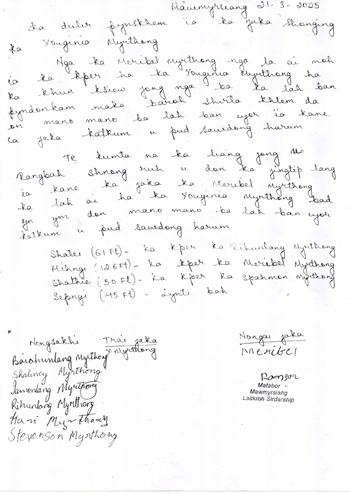 Mawmyrsiang 21-3-2025
Ka dulir pynskhem ia ka jaka shonging
ka Youginia Myrthong
Nga ka Meribel Myrthong nga la ai noh
ia ka kper ha ka Youginia Myrthong ha
ka khun ksiew jong nga ba ka lah ban
pyndonkam maka baroh shirta khlem da
on mano mano ba lah ban wor ia kane
ca jaka katkum u pud sawdong harum
Te kumta na ka liang jong u
Rangbah Shnong ruh u don ka jingtip lang
ia kane ka jaka ka Meribel Myrthong
ka lah ai ha ka Youginia Myrthong bad
yn ym don mano mano ba lah ban wor
katkum u pud sawdong harum
Shatei (61 Ft) - ka kper ka Rihunlang Myrthong
Mihngi (126 Ft) - ka kper ka Meribel Myrthong
Shathie (50 Ft) - ka kper ka Spahmon Myrthong
Sepngi (45 Ft) - Lynti bah
Nongsakhi
Barohunlang Myrthong
Shaliney Myrthong
Iawonlang Myrthong
Rihunlang Myrthong
Hari Myrthong
Stevenson Myrthong
Thai jaka
Y Myrthong
Nongai jaka
Meribel
Matabor
Mawmyrsiang
Laitkroh Sirdarship